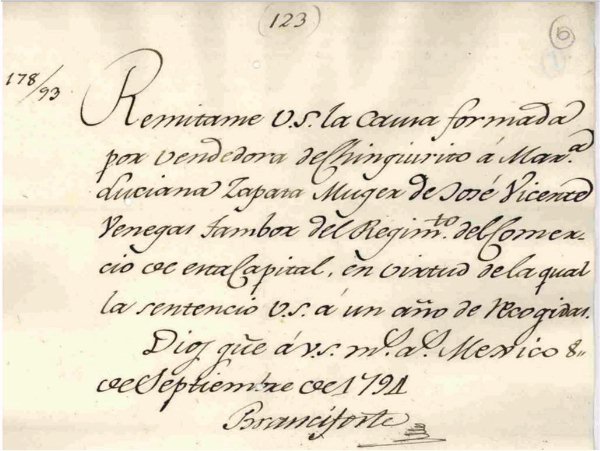 (123)
6
178/93
Remitame V.S. la causa formada
por vendedora de Chinguirito á Mar.a
Luciana Zapata Muger de José Vicente
Venegas tambor del Regim.to del Comer-
cio de esta Capital, en virtud de la qual
la sentenció V.S. á un año de recogidas.
Dios gũe á V.S. m.s a.s Mexico 8
de Septiembre de 1794
Branciforte